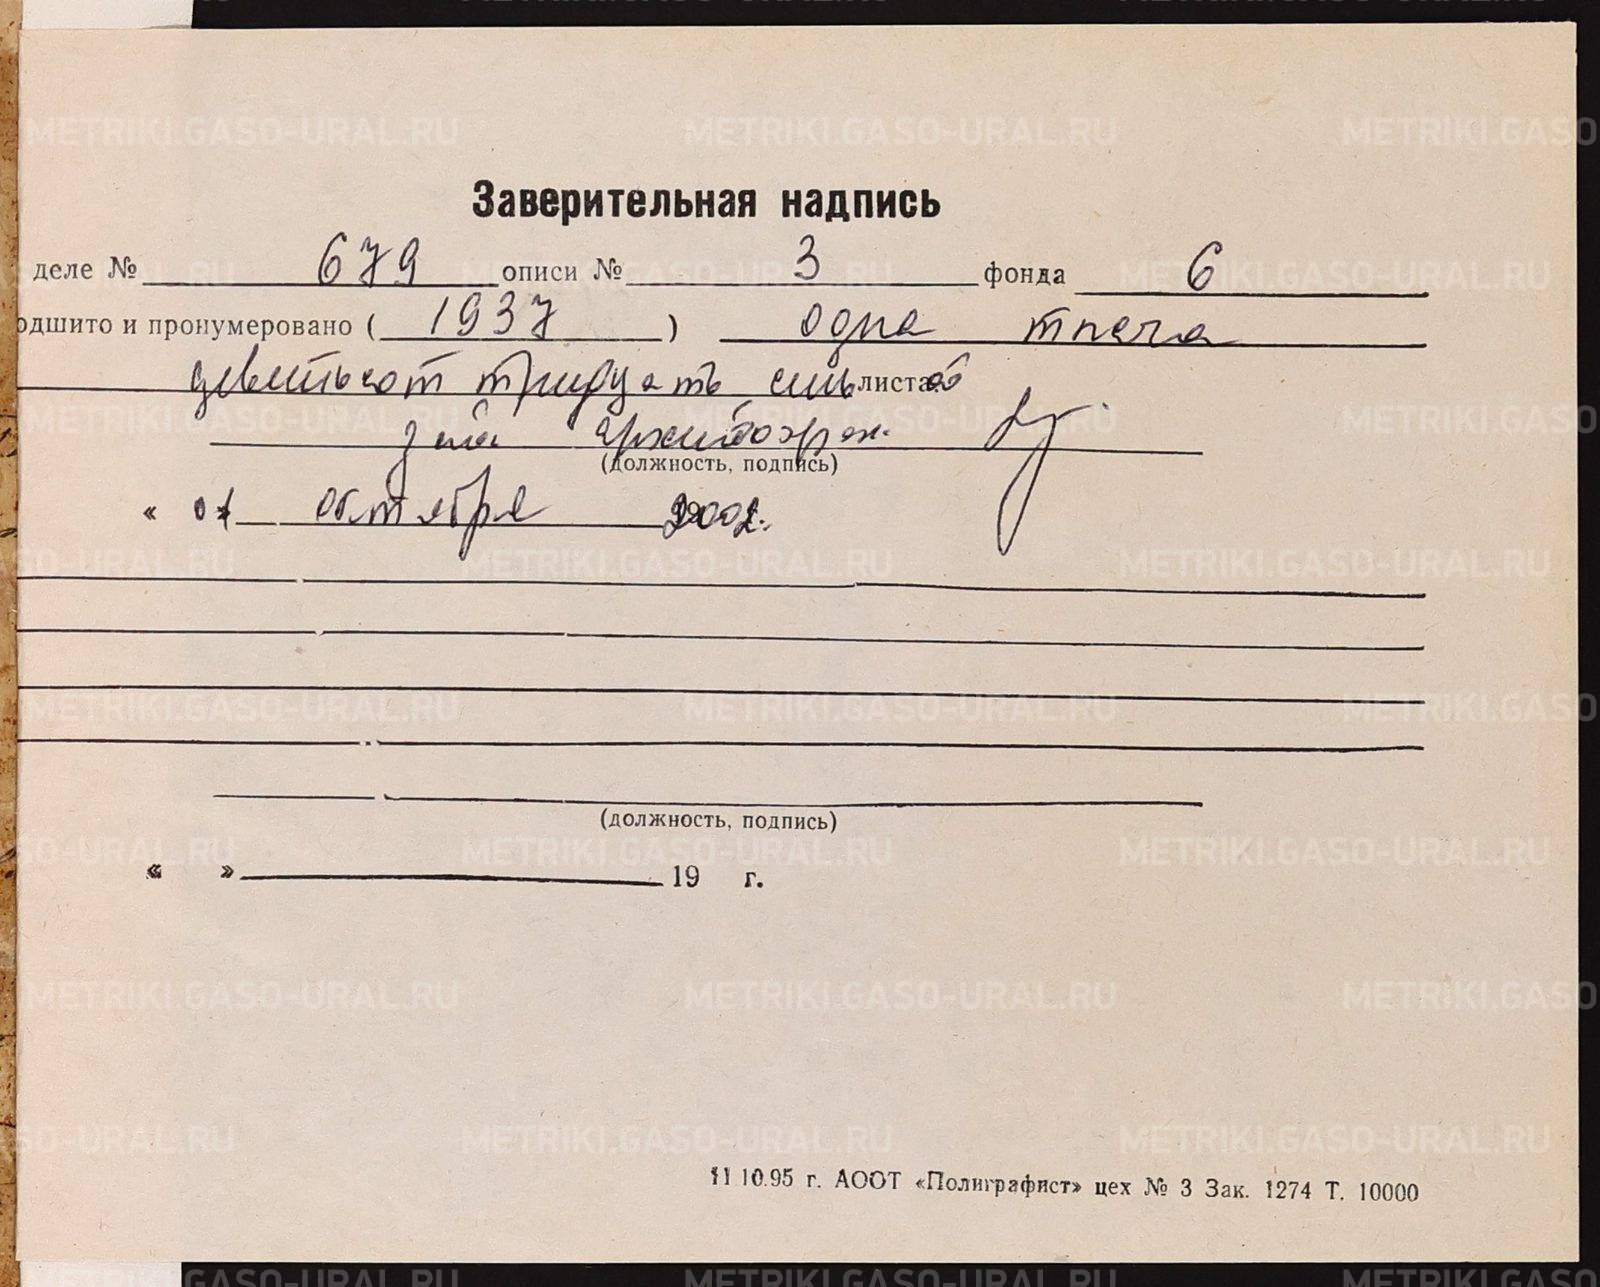 Заверительная надпись
деле № 679 описи № 3 фонда 6
одшито и пронумеровано ( 1937 ) одна тысяча
девятьсот тридцать семь листов
(должность, подпись)
« 01 октября 2002.
(должность, подпись)
« » 19 г.
11 10.95 г. АООТ «Полиграфист» цех № 3 Зак. 1274 Т. 10000